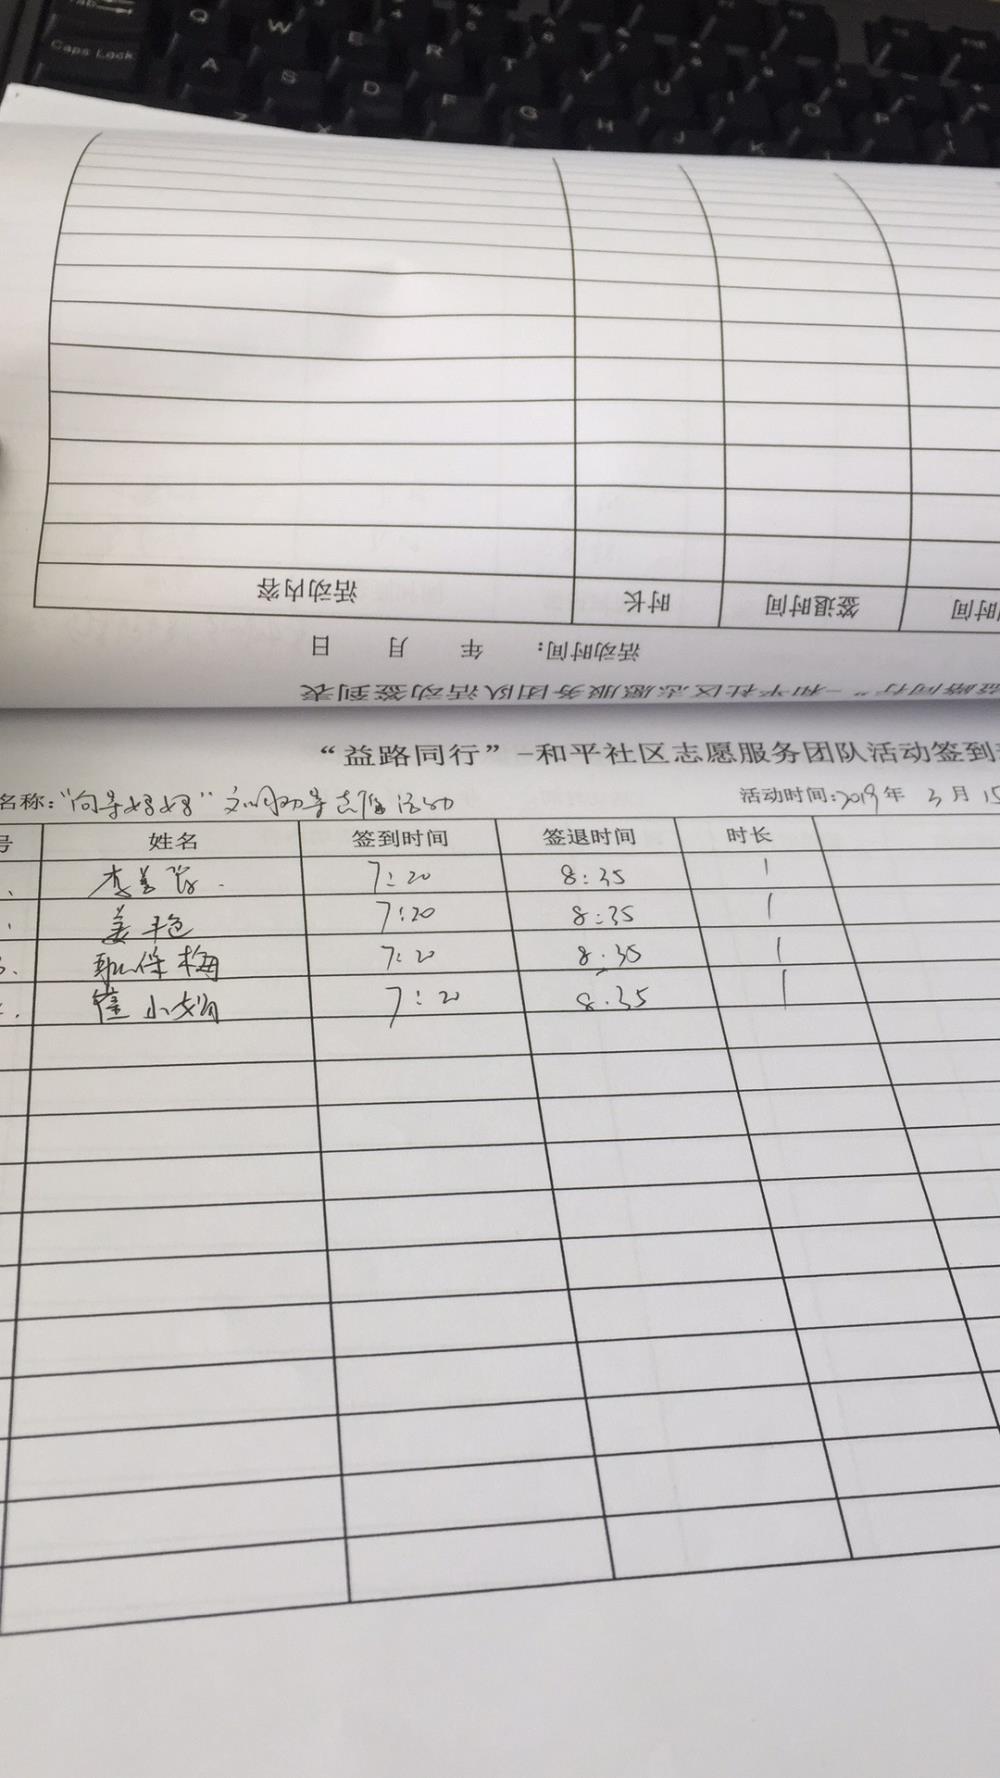 Caps Lock Q W E R T Y
A S D F G H J K
活动内容 时长 签退时间
活动时间： 年 月 日
益路同行”-和平社区志愿服务团队活动签到表
“益路同行”-和平社区志愿服务团队活动签到
名称：“向导妈妈” 文明劝导志愿活动 活动时间：2019年 3月15
号 姓名 签到时间 签退时间 时长
李 7:20 8:35 1
姜艳 7:20 8:35 1
3. 耿保梅 7:20 8:35 1
崔小娟 7:20 8:35 1